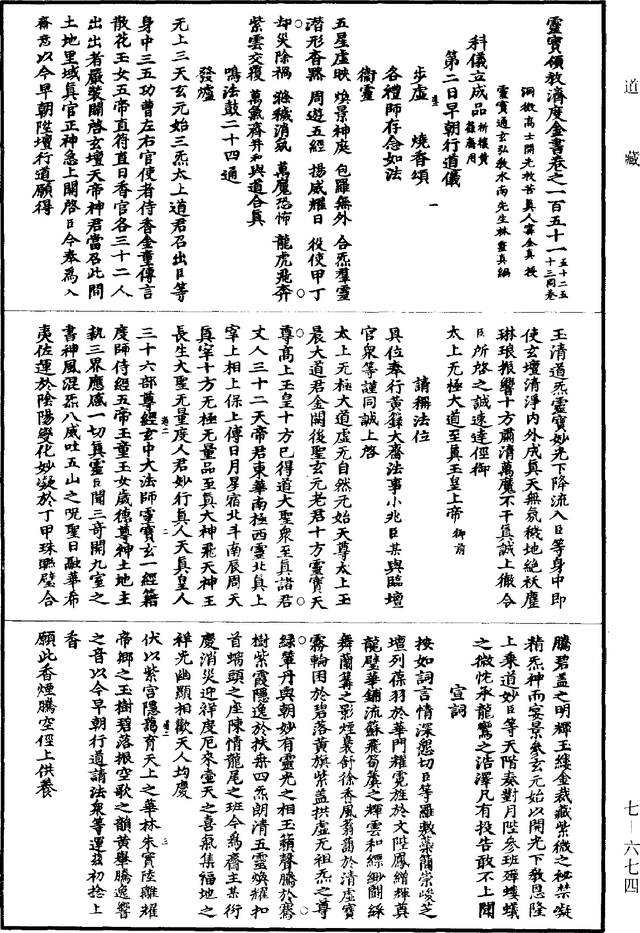 道藏
靈寶領教濟度金書卷之一百五十一 五十二五十三同卷
洞微高士開光救苦真人甯全真授
靈寶通玄弘教水南先生林靈真編
科儀立成品 祈禳黃籙齋用
第二日早朝行道儀
步虛 燒香頌 一
各禮師存念如法
衛靈
五星虛映 煥景神庭 包羅無外 合炁羣靈
潛形杳黙 周遊五經 揚威耀日 役使甲丁
却災除禍 滌穢消氛 萬魔恐怖 龍虎飛奔
紫雲交覆 萬氣齊并和與道合真
鳴法鼓二十四通
發爐
无上三天玄元始三炁太上道君召出臣等
身中三五功曹左右官使者侍香金童傳言
散花玉女五帝直符直日香官各三十二人
出出者嚴裝關啓玄壇天帝神君當召此間
土地里域真官正神急上關啓臣今奉為入
齋意以今早朝陞壇行道願得
玉清道炁靈寶妙光下降流入臣等身中即
使玄壇清淨內外成真天無氛穢地絶袄塵
琳琅振響十方肅清萬魔不干真誠上徹令
臣所啓之誠速達徑御
太上无極大道至真玉皇上帝 御前
請稱法位
具位奉行黃籙大齋法事小兆臣某與臨壇
官衆等謹同誠上啓
太上无極大道虛无自然元始天尊太上玉
晨大道君金闕後聖玄元老君十方靈寶天
尊高上玉皇十方已得道大聖衆至真諸君
丈人三十二天帝君東華南極西靈北真上
宰上相上保上傅日月星宿北斗南辰周天
真宰十方无極无量品至真大神飛天神王
長生大聖无量度人君妙行真人天真皇人
三十六部尊經玄中大法師靈寶玄一經籍
度師侍經五帝玉童玉女歲德尊神土地主
執三界應感一切真靈臣聞三奇開九室之
書神風混炁八威吐五山之呪聖日融華希
夷佐運於陰陽變化妙凝於丁甲珠聯璧合
騰碧盖之明輝玉縫金裁藏紫微之秘禁凝
精炁神而宴景參玄元始以開光下教恩隆
上乘道妙臣等天階奏對月陛參班殫螻蟻
之微忱承龍鸞之浩澤凡有投告敢不上聞
宣詞
按如詞言情深懇切臣等羅敷蘂簡崇峻芝
壇列葆羽於華門耀霓旌於文陛鳳繒輝真
龍璧華鋪流蘇飛筍簴之輝雲和縹緲闘綵
舞蘭篝之影煙裊舒徐香風蓊藹於清虛寶
霧輪囷於碧落黃旗紫盖拱虛无祖炁之尊
綠輦丹輿朝妙有靈光之相玉籟聲騰於騫
樹紫霞隱逸於扶桑四炁朗清五靈煥耀扣
首螭頭之座陳情龍尾之班今為齋主某祈
慶消災迎祥度厄來壺天之喜氣集福地之
祥光幽顯相歡天人均慶
伏以紫宫隱藹育天上之華林朱實陸離耀
帝鄉之玉樹碧落振空歌之韻黃轝騰逸響
之音以今早朝行道請法衆等運茲初捻上
香
願此香煙騰空徑上供養
七－六七四